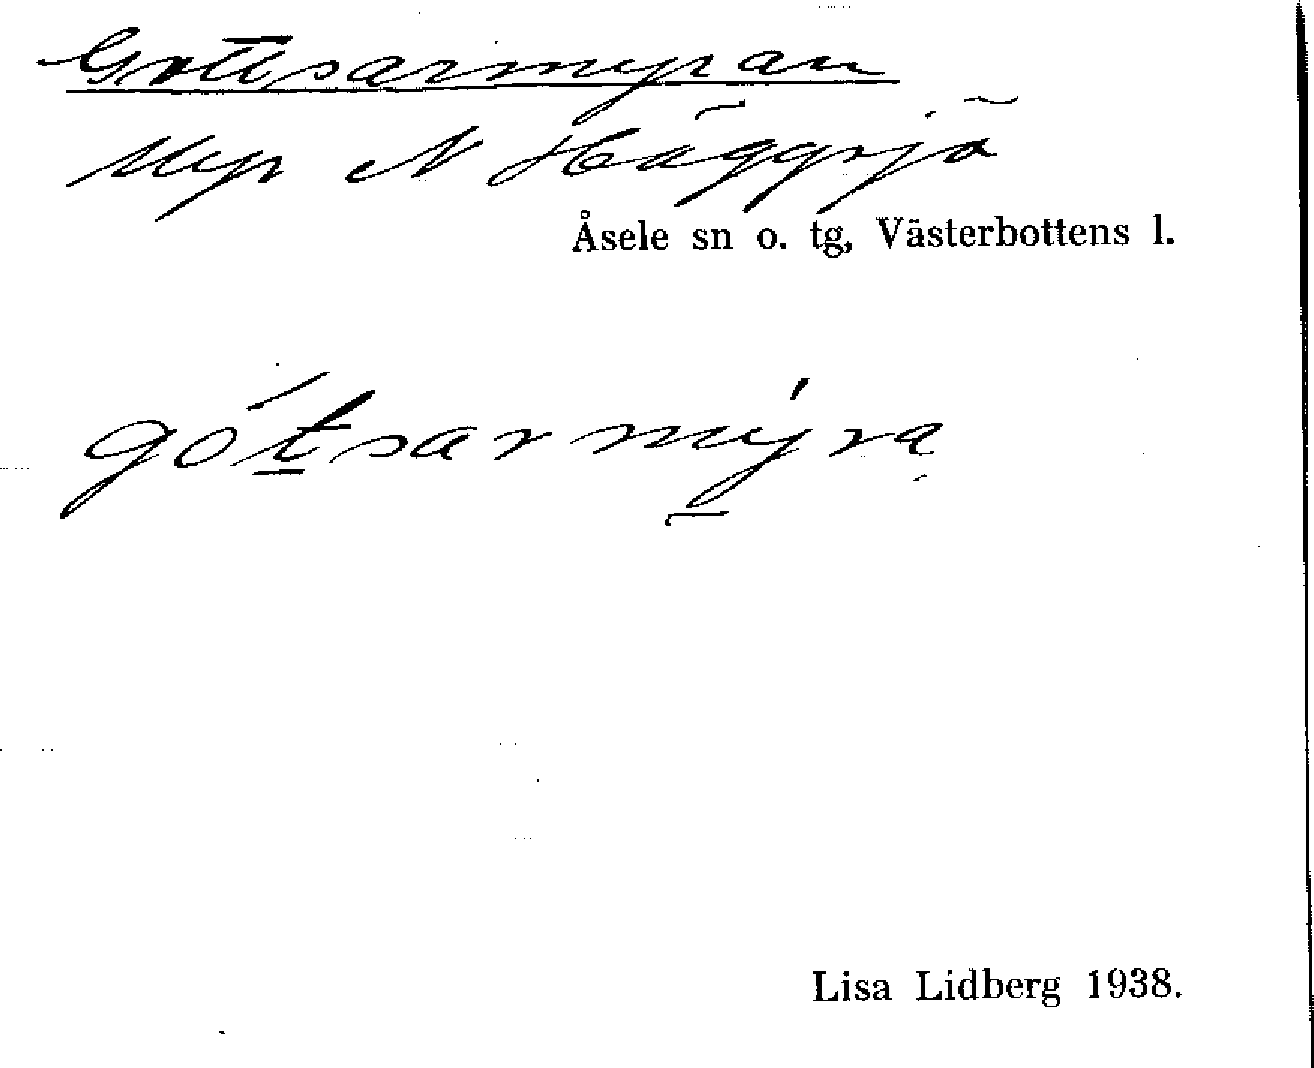 Gottsarmyran
Myr N Häggsjö
Åsele sn o. tg, Västerbottens l.
gót̲sarmýra
Lisa Lidberg 1938.